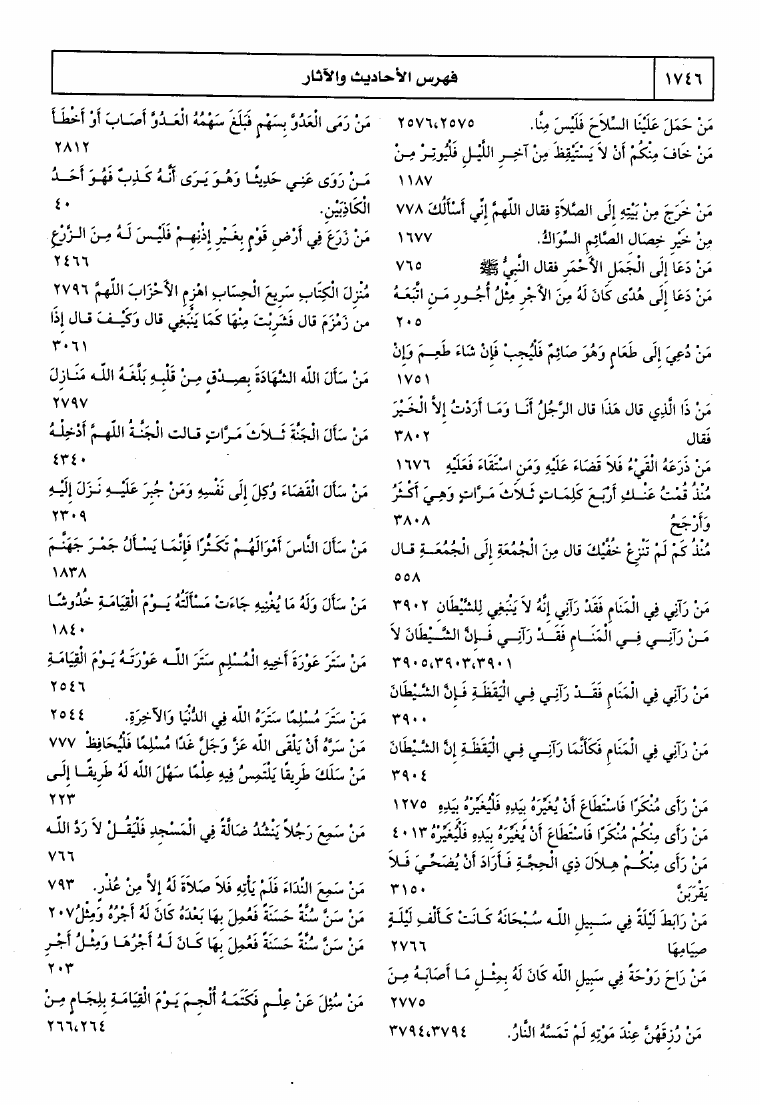 ١٧٤٦
فهرس الأحاديث والآثار
مَنْ حَمَلَ عَلَيْنَا السِّلَاحَ فَلَيْسَ مِنَّا. ٢٥٧٦،٢٥٧٥
مَنْ خَافَ مِنْكُمْ أَنْ لاَ يَسْتَيْقِظَ مِنْ آخِرِ اللَّيْلِ فَلْيُوتِرْ مِنْ
١١٨٧
مَنْ خَرَجَ مِنْ بَيْتِهِ إِلَى الصَّلاَةِ فقال اللَّهمَّ إِنِّي أَسْأَلُكَ ٧٧٨
مِنْ خَيْرِ خِصَال الصَّائِمِ السِّوَاكُ. ١٦٧٧
مَنْ دَعَا إِلَى الْجَمَلِ الأَحْمَرِ فقال النَّبِيُّ ﷺ ٧٦٥
مَنْ دَعَا إِلَى هُدًى كَانَ لَهُ مِنَ الأَجْرِ مِثْلُ أُجُورِ مَنِ اتَّبَعَهُ
٢٠٥
مَنْ دُعِيَ إِلَى طَعَامٍ وَهُوَ صَائِمٌ فَلْيُجِبْ فَإِنْ شَاءَ طَعِمَ وَإِنْ
١٧٥١
مَنْ ذَا الَّذِي قال هَذَا قال الرَّجُلُ أَنَا وَمَا أَرَدْتُ إِلاَّ الْخَيْرَ
فَقال ٣٨٠٢
مَنْ ذَرَعَهُ الْقَيْءُ فَلاَ قَضَاءَ عَلَيْهِ وَمَنِ اسْتَقَاءَ فَعَلَيْهِ ١٦٧٦
مُنْذُ قُمْتُ عَنْكِ أَرْبَعَ كَلِمَاتٍ ثَلاَثَ مَرَّاتٍ وَهِيَ أَكْثَرُ
وَأَرْجَحُ ٣٨٠٨
مُنْذُ كَمْ لَمْ تَنْزِعْ خُفَّيْكَ قال مِنَ الْجُمُعَةِ إِلَى الْجُمُعَةِ قال
٥٥٨
مَنْ رَآنِي فِي الْمَنَامِ فَقَدْ رَآنِي إِنَّهُ لاَ يَنْبَغِي لِلشَّيْطَانِ ٣٩٠٢
مَنْ رَآنِي فِي الْمَنَامِ فَقَدْ رَآنِي فَإِنَّ الشَّيْطَانَ لاَ
٣٩٠٥،٣٩٠٣،٣٩٠١
مَنْ رَآنِي فِي الْمَنَامِ فَقَدْ رَآنِي فِي الْيَقَظَةِ فَإِنَّ الشَّيْطَانَ
٣٩٠٠
مَنْ رَآنِي فِي الْمَنَامِ فَكَأَنَّمَا رَآنِي فِي الْيَقَظَةِ إِنَّ الشَّيْطَانَ
٣٩٠٤
مَنْ رَأَى مُنْكَرًا فَاسْتَطَاعَ أَنْ يُغَيِّرَهُ بِيَدِهِ فَلْيُغَيِّرْهُ بِيَدِهِ ١٢٧٥
مَنْ رَأَى مِنْكُمْ مُنْكَرًا فَاسْتَطَاعَ أَنْ يُغَيِّرَهُ بِيَدِهِ فَلْيُغَيِّرْهُ ٤٠١٣
مَنْ رَأَى مِنْكُمْ هِلاَلَ ذِي الْحِجَّةِ فَأَرَادَ أَنْ يُضَحِّيَ فَلاَ
يَقْرَبَنَّ ٣١٥٠
مَنْ رَابَطَ لَيْلَةً فِي سَبِيلِ اللَّه سُبْحَانَهُ كَانَتْ كَأَلْفِ لَيْلَةٍ
صيَامِهَا ٢٧٦٦
مَنْ رَاحَ رَوْحَةً فِي سَبِيلِ اللَّه كَانَ لَهُ بِمِثْلِ مَا أَصَابَهُ مِنَ
٢٧٧٥
مَنْ رُزِقَهُنَّ عِنْدَ مَوْتِهِ لَمْ تَمَسَّهُ النَّارُ. ٣٧٩٤،٣٧٩٤
مَنْ رَمَى الْعَدُوَّ بِسَهْمٍ فَبَلَغَ سَهْمُهُ الْعَدُوَّ أَصَابَ أَوْ أَخْطَأَ
٢٨١٢
مَنْ رَوَى عَنِي حَدِيثًا وَهُوَ يَرَى أَنَّهُ كَذِبٌ فَهُوَ أَحَدُ
الْكَاذِبَيْنِ. ٤٠
مَنْ زَرَعَ فِي أَرْضِ قَوْمٍ بِغَيْرِ إِذْنِهِمْ فَلَيْسَ لَهُ مِنَ الزَّرْعِ
٢٤٦٦
مُنْزِلَ الْكِتَابِ سَرِيعَ الْحِسَابِ اهْزِمِ الأَحْزَابَ اللَّهمَّ ٢٧٩٦
من زَمْزَمَ قال فَشَرِبْتَ مِنْهَا كَمَا يَنْبَغِي قال وَكَيْفَ قال إِذَا
٣٠٦١
مَنْ سَأَلَ اللَّه الشَّهَادَةَ بِصِدْقٍ مِنْ قَلْبِهِ بَلَّغَهُ اللَّه مَنَازِلَ
٢٧٩٧
مَنْ سَأَلَ الْجَنَّةَ ثَلاَثَ مَرَّاتٍ قالت الْجَنَّةُ اللَّهمَّ أَدْخِلْهُ
٤٣٤٠
مَنْ سَأَلَ الْقَضَاءَ وُكِلَ إِلَى نَفْسِهِ وَمَنْ جُبِرَ عَلَيْهِ نَزَلَ إِلَيْهِ
٢٣٠٩
مَنْ سَأَلَ النَّاسَ أَمْوَالَهُمْ تَكَثُّرًا فَإِنَّمَا يَسْأَلُ جَمْرَ جَهَنَّمَ
١٨٣٨
مَنْ سَأَلَ وَلَهُ مَا يُغْنِيهِ جَاءَتْ مَسْأَلَتُهُ يَوْمَ الْقِيَامَةِ خُدُوشًا
١٨٤٠
مَنْ سَتَرَ عَوْرَةَ أَخِيهِ الْمُسْلِمِ سَتَرَ اللَّه عَوْرَتَهُ يَوْمَ الْقِيَامَةِ
٢٥٤٦
مَنْ سَتَرَ مُسْلِمًا سَتَرَهُ اللَّه فِي الدُّنْيَا وَالآخِرَةِ. ٢٥٤٤
مَنْ سَرَّهُ أَنْ يَلْقَى اللَّه عَزَّ وَجَلَّ غَدًا مُسْلِمًا فَلْيُحَافِظْ ٧٧٧
مَنْ سَلَكَ طَرِيقًا يَلْتَمِسُ فِيهِ عِلْمًا سَهَّلَ اللَّه لَهُ طَرِيقًا إِلَى
٢٢٣
مَنْ سَمِعَ رَجُلاً يَنْشُدُ ضَالَّةً فِي الْمَسْجِدِ فَلْيَقُلْ لاَ رَدَّ اللَّه
٧٦٦
مَنْ سَمِعَ النِّدَاءَ فَلَمْ يَأْتِهِ فَلاَ صَلاَةَ لَهُ إِلاَّ مِنْ عُذْرٍ. ٧٩٣
مَنْ سَنَّ سُنَّةً حَسَنَةً فَعُمِلَ بِهَا بَعْدَهُ كَانَ لَهُ أَجْرُهُ وَمِثْلُ ٢٠٧
مَنْ سَنَّ سُنَّةً حَسَنَةً فَعُمِلَ بِهَا كَانَ لَهُ أَجْرُهَا وَمِثْلُ أَجْرِ
٢٠٣
مَنْ سُئِلَ عَنْ عِلْمٍ فَكَتَمَهُ أُلْجِمَ يَوْمَ الْقِيَامَةِ بِلِجَامٍ مِنْ
٢٦٦،٢٦٤